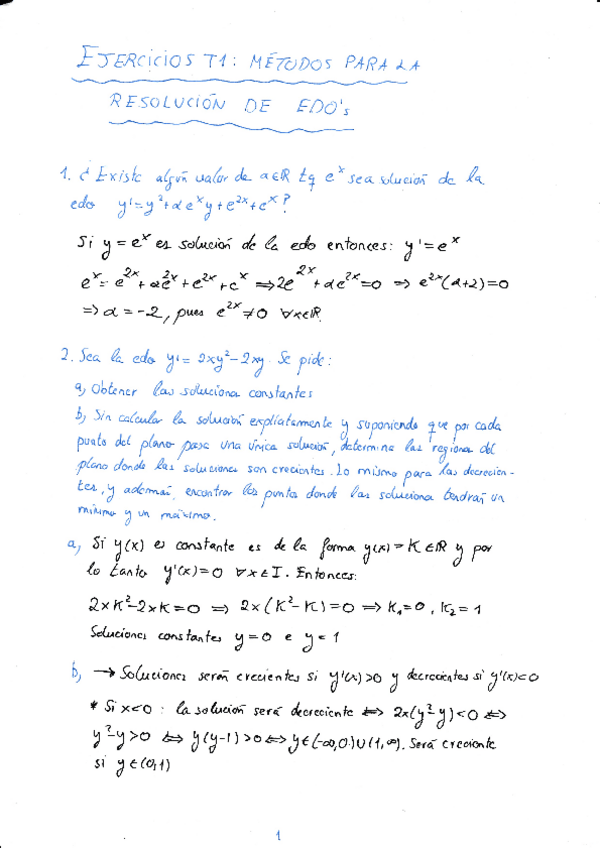 EJERCICIOS T1: MÉTODOS PARA LA
RESOLUCIÓN DE EDO's
1. ¿Existe algún valor de α∈ℝ tq eˣ sea solución de la
edo y'=y²+αeˣy+e²ˣ+eˣ?
Si y=eˣ es solución de la edo entonces: y'=eˣ
eˣ=e²ˣ+αe²ˣ+e²ˣ+eˣ ⇒2e²ˣ+αe²ˣ=0 ⇒ e²ˣ(α+2)=0
⇒α=-2, pues e²ˣ≠0 ∀x∈ℝ.
2. Sea la edo y'=2xy²-2xy. Se pide:
a) Obtener las soluciones constantes
b) Sin calcular la solución explícitamente y suponiendo que por cada
punto del plano pasa una única solución, determina las regiones del
plano donde las soluciones son crecientes. Lo mismo para las decrecien-
tes, y además, encontrar los puntos donde las soluciones tendrán un
mínimo y un máximo.
a) Si y(x) es constante es de la forma y(x)=K∈ℝ y por
lo tanto y'(x)=0 ∀x∈I. Entonces:
2xK²-2xK=0 ⇒ 2x(K²-K)=0 ⇒ K₁=0, K₂=1
Soluciones constantes y=0 e y=1
b) → Soluciones serán crecientes si y'(x)>0 y decrecientes si y'(x)<0
* Si x<0: la solución será decreciente ⇔ 2x(y²-y)<0 ⇔
y²-y>0 ⇔ y(y-1)>0 ⇔ y∈(-∞,0)∪(1,∞). Será creciente
si y∈(0,1)
1